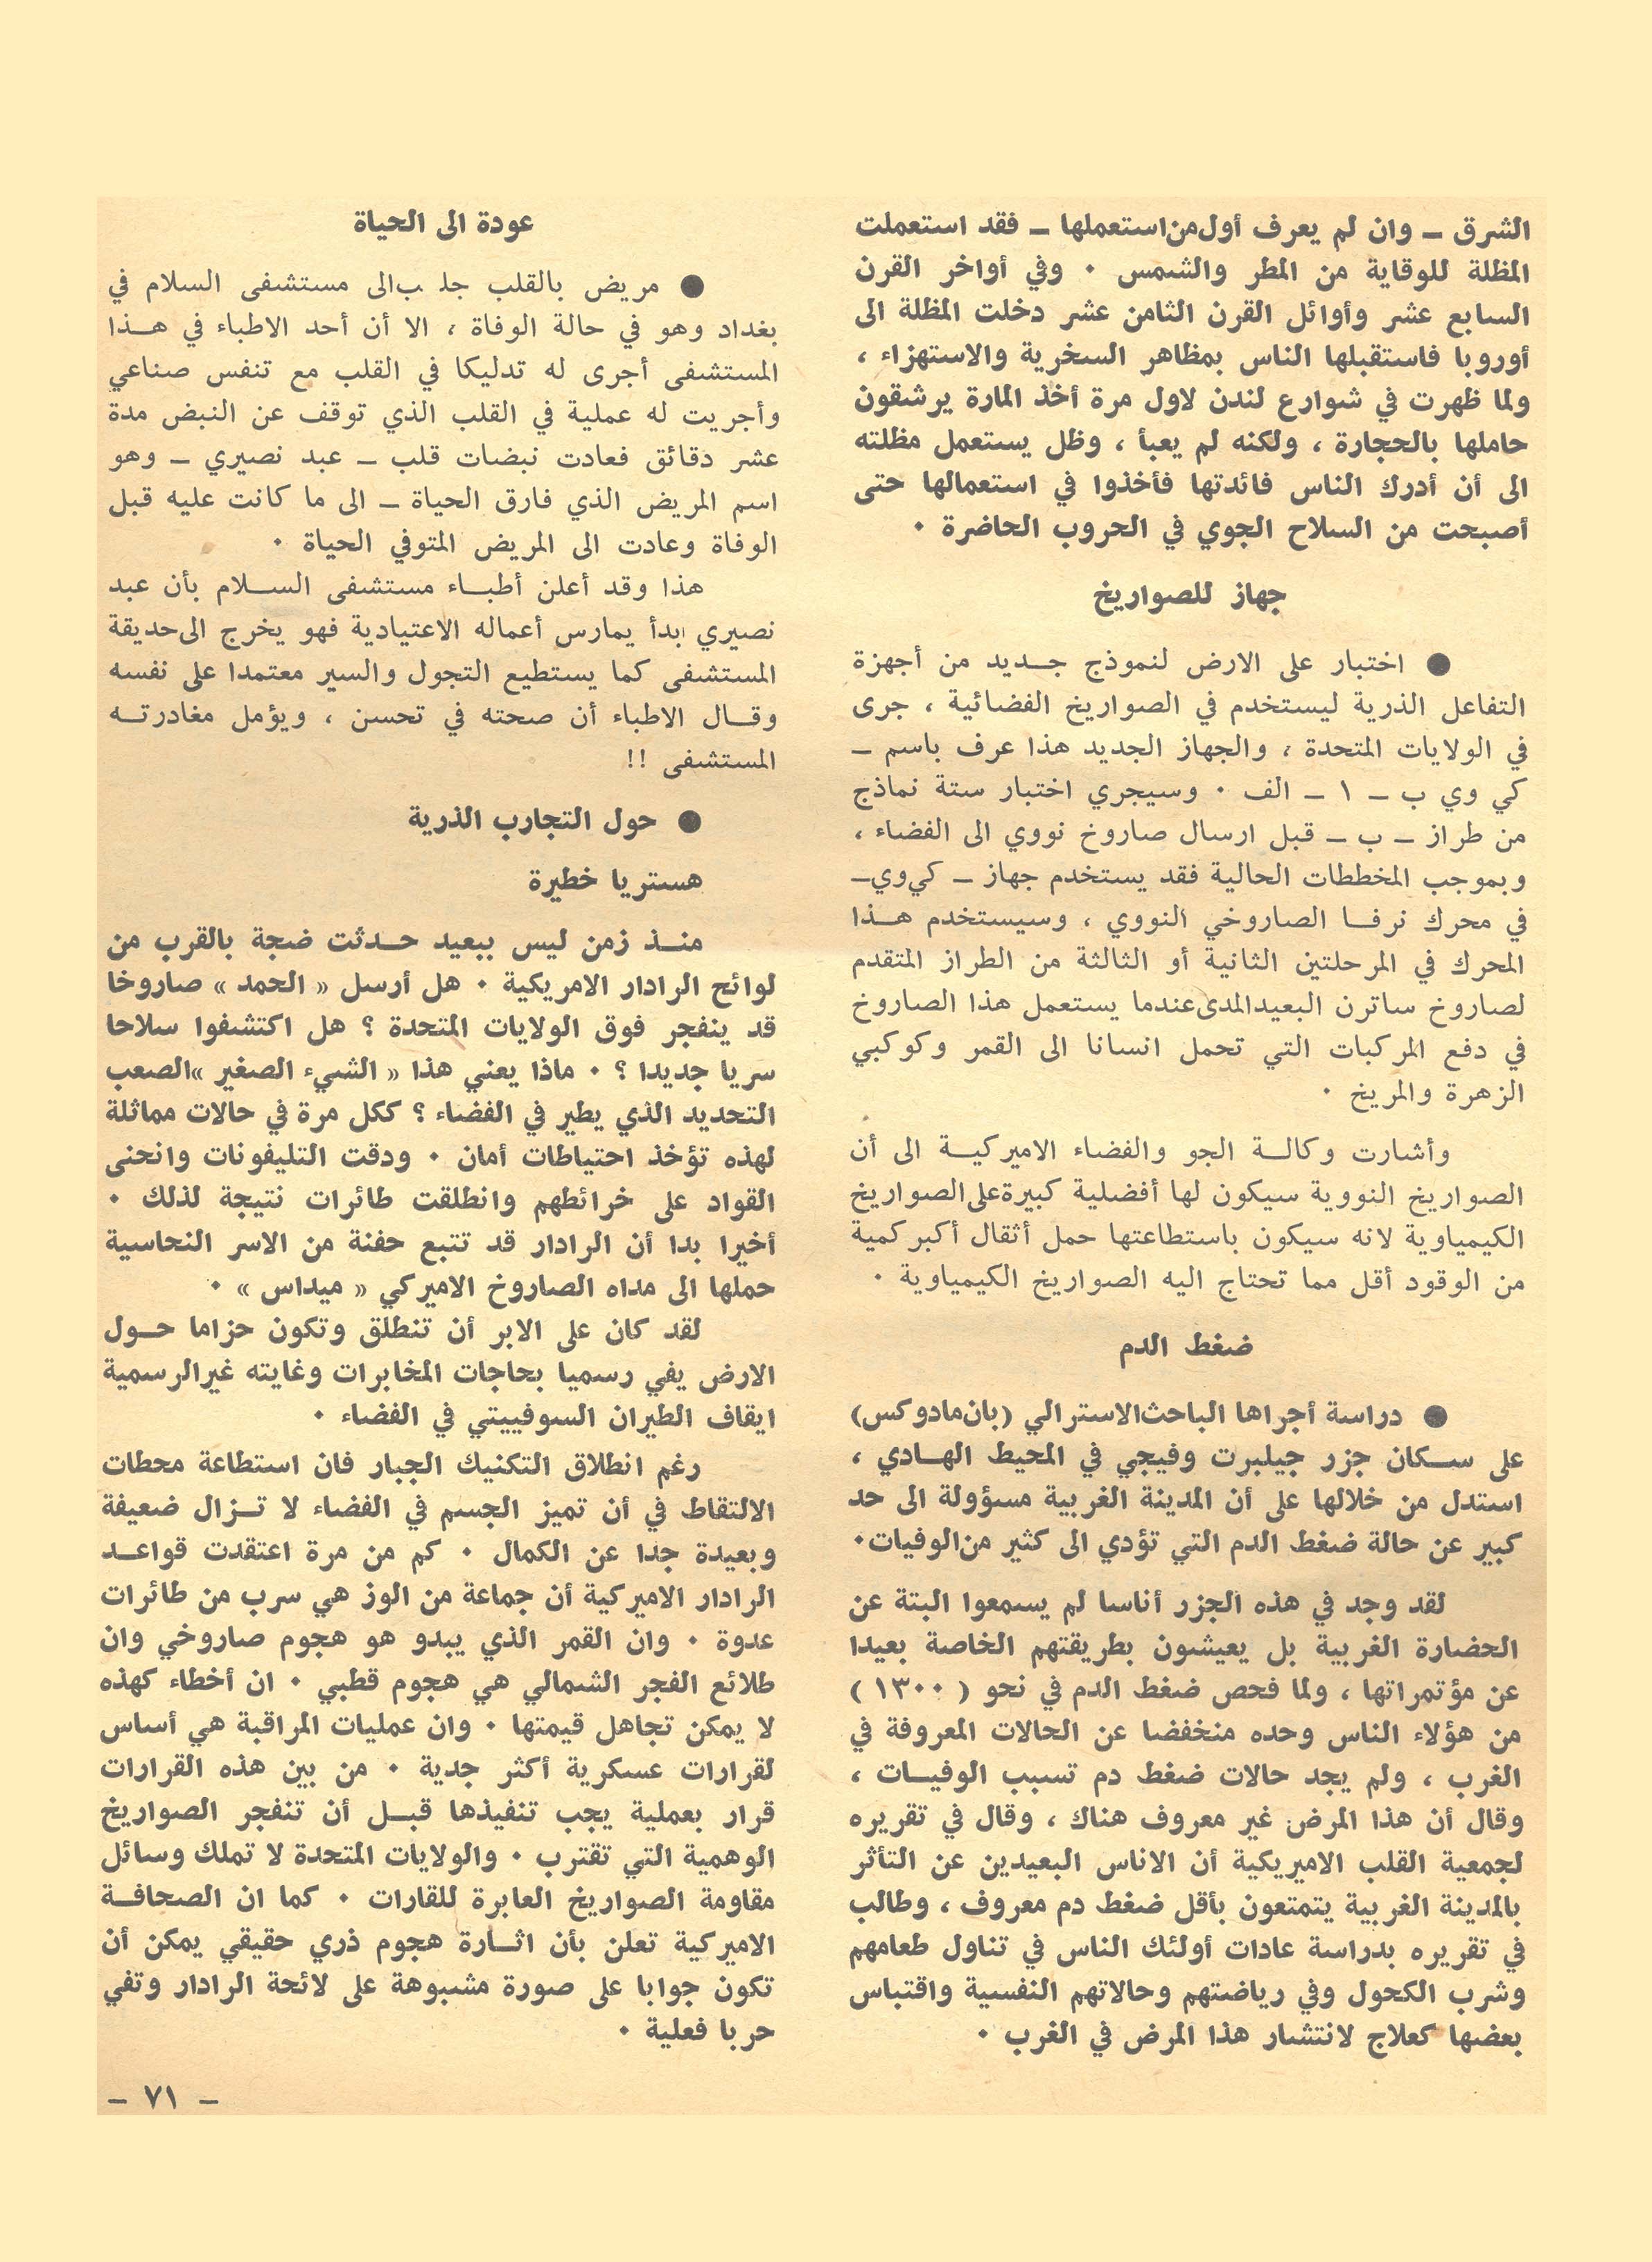 الشرق – وان لم يعرف أول من استعملها – فقد استعملت
المظلة للوقاية من المطر والشمس ٠ وفي أواخر القرن
السابع عشر وأوائل القرن الثامن عشر دخلت المظلة الى
أوروبا فاستقبلها الناس بمظاهر السخرية والاستهزاء ،
ولما ظهرت في شوارع لندن لاول مرة أخذ المارة يرشقون
حاملها بالحجارة ، ولكنه لم يعبأ ، وظل يستعمل مظلته
الى أن أدرك الناس فائدتها فأخذوا في استعمالها حتى
أصبحت من السلاح الجوي في الحروب الحاضرة ٠
جهاز للصواريخ
● اختبار على الارض لنموذج جـديد من أجهزة
التفاعل الذرية ليستخدم في الصواريخ الفضائية ، جرى
في الولايات المتحدة ، والجهاز الجديد هذا عرف باسم –
كي وي ب – ١ – الف ٠ وسيجري اختبار ستة نماذج
من طراز – ب – قبل ارسال صاروخ نووي الى الفضاء ،
وبموجب المخططات الحالية فقد يستخدم جهاز – كي وي –
في محرك نرفـا الصاروخي النووي ، وسيستخدم هـذا
المحرك في المرحلتين الثانية أو الثالثة من الطراز المتقدم
لصاروخ ساترن البعيد المدى عندما يستعمل هذا الصاروخ
في دفع المركبات التي تحمل انسانا الى القمر وكوكبي
الزهرة والمريخ ٠
وأشارت وكالـة الجو والفضاء الاميركيـة الى أن
الصواريخ النووية سيكون لها أفضلية كبيرة على الصواريخ
الكيمياوية لانه سيكون باستطاعتها حمل أثقال أكبر كمية
من الوقود أقل مما تحتاج اليه الصواريخ الكيمياوية ٠
ضغط الدم
● دراسة أجراها الباحث الاسترالي (بان مادوكس)
على سـكان جزر جيلبرت وفيجي في المحيط الهـادي ،
استدل من خلالها على أن المدينة الغربية مسؤولة الى حد
كبير عن حالة ضغط الدم التي تؤدي الى كثير من الوفيات ٠
لقد وجد في هذه الجزر أناسا لم يسمعوا البتة عن
الحضارة الغربية بل يعيشون بطريقتهم الخاصة بعيدا
عن مؤتمراتها ، ولما فحص ضغط الدم في نحو ( ١٣٠٠ )
من هؤلاء الناس وحده منخفضا عن الحالات المعروفة في
الغرب ، ولم يجد حالات ضغط دم تسبب الوفيـات ،
وقال أن هذا المرض غير معروف هناك ، وقال في تقريره
لجمعية القلب الاميريكية أن الاناس البعيدين عن التأثر
بالمدينة الغربية يتمتعون بأقل ضغط دم معروف ، وطالب
في تقريره بدراسة عادات أولئك الناس في تناول طعامهم
وشرب الكحول وفي رياضتهم وحالاتهم النفسية واقتباس
بعضها كعلاج لانتشار هذا المرض في الغرب ٠
عودة الى الحياة
● مريض بالقلب جلب الى مستشفى السلام في
بغداد وهو في حالة الوفاة ، الا أن أحد الاطباء في هـذا
المستشفى أجرى له تدليكا في القلب مع تنفس صناعي
وأجريت له عملية في القلب الذي توقف عن النبض مدة
عشر دقائق فعادت نبضات قلب – عبد نصيري – وهو
اسم المريض الذي فارق الحياة – الى ما كانت عليه قبل
الوفاة وعادت الى المريض المتوفي الحياة ٠
هذا وقد أعلن أطبـاء مستشفى السـلام بأن عبد
نصيري بدأ يمارس أعماله الاعتيادية فهو يخرج الى حديقة
المستشفى كما يستطيع التجول والسير معتمدا على نفسه
وقـال الاطباء أن صحته في تحسن ، ويؤمل مغادرتـه
المستشفى !!
● حول التجارب الذرية
هستريا خطيرة
منـذ زمن ليس ببعيد حـدثت ضجة بالقرب من
لوائح الرادار الامريكية ٠ هل أرسل « الحمد » صاروخا
قد ينفجر فوق الولايات المتحدة ؟ هل اكتشفوا سلاحا
سريا جديدا ؟ ٠ ماذا يعني هذا « الشيء الصغير » الصعب
التحديد الذي يطير في الفضاء ؟ ككل مرة في حالات مماثلة
لهذه تؤخذ احتياطات أمان ٠ ودقت التليفونات وانحنى
القواد على خرائطهم وانطلقت طائرات نتيجة لذلك ٠
أخيرا بدا أن الرادار قد تتبع حفنة من الاسر النحاسية
حملها الى مداه الصاروخ الاميركي « ميداس » ٠
لقد كان على الابر أن تنطلق وتكون حزاما حـول
الارض يفي رسميا بحاجات المخابرات وغايته غير الرسمية
ايقاف الطيران السوفييتي في الفضاء ٠
رغم انطلاق التكنيك الجبار فان استطاعة محطات
الالتقاط في أن تميز الجسم في الفضاء لا تـزال ضعيفة
وبعيدة جدا عن الكمال ٠ كم من مرة اعتقدت قواعـد
الرادار الاميركية أن جماعة من الوز هي سرب من طائرات
عدوة ٠ وان القمر الذي يبدو هو هجوم صاروخي وان
طلائع الفجر الشمالي هي هجوم قطبي ٠ ان أخطاء كهذه
لا يمكن تجاهل قيمتها ٠ وان عمليات المراقبة هي أساس
لقرارات عسكرية أكثر جدية ٠ من بين هذه القرارات
قرار بعملية يجب تنفيذها قبـل أن تنفجر الصواريخ
الوهمية التي تقترب ٠ والولايات المتحدة لا تملك وسائل
مقاومة الصواريخ العابرة للقارات ٠ كما ان الصحافـة
الاميركية تعلن بأن اثـارة هجوم ذري حقيقي يمكن أن
تكون جوابا على صورة مشبوهة على لائحة الرادار وتفي
حربا فعلية ٠
– ٧١ –